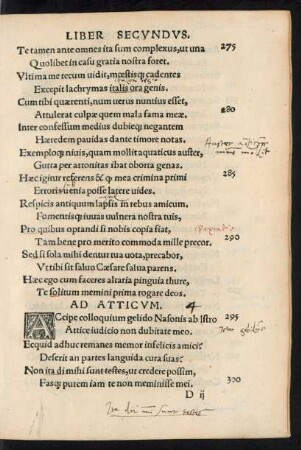 LIBER SECVNDVS.
Te tamen ante omnes ita sum complexus, ut una 275
Quolibet in casu gratia nostra foret.
Vltima me tecum uidit, mœstisq; cadentes
Excepit lachrymas italis ora genis.
Cum tibi quærenti, num uerus nuntius esset,
Attulerat culpæ quem mala fama meæ. 280
Inter confessum medius dubieq; negantem
Hærebam pauidas dante timore notas.
Exemploq; niuis, quam mollit aquaticus auster,
Gutta per attonitas ibat oborta genas.
Hæc igitur referens & q̃ mea crimina primi 285
Erroris uenia posse latere uides.
Respicis antiquum lapsis in rebus amicum,
Fomentisq; iuuas uulnera nostra tuis,
Pro quibus optandi si nobis copia fiat,
Tam bene pro merito commoda mille precor. 290
Sed si sola mihi dentur tua uota, precabor,
Vt tibi sit saluo Cæsare salua parens.
Hæc ego cum faceres altaria pinguia thure,
Te solitum memini prima rogare deos.
AD ATTICVM. 4
Accipe colloquium gelido Nasonis ab Istro 295
Attice iudicio non dubitate meo.
Ecquid adhuc remanes memor infelicis amici?
Deserit an partes languida cura suas?
Non ita di mihi sunt testes, ut credere possim,
Fasq; putem iam te non meminisse mei. 300
D ij